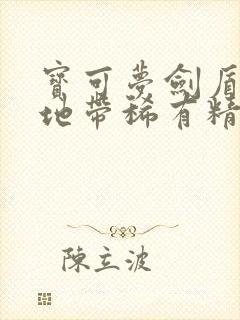 寶可夢劍盾
地帶稀有精
陳立波